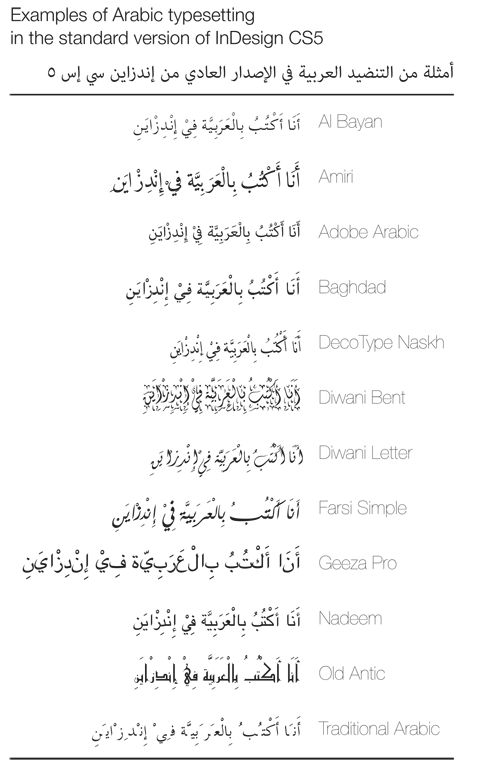 Examples of Arabic typesetting
in the standard version of InDesign CS5
أمثلة من التنضيد العربية في الإصدار العادي من إندزاين سي إس ٥
أَنَا أَكْتُبُ بِالْعَرَبِيَّة فِيْ إِنْدِزْاَيَنِ Al Bayan
أَنَا أَكْتُبُ بِالْعَرَبِيَّة فِيْ إِنْدِزْاَيَنِ Amiri
أَنَا أَكْتُبُ بِالْعَرَبِيَّة فِيْ إِنْدِزْاَيَنِ Adobe Arabic
أَنَا أَكْتُبُ بِالْعَرَبِيَّة فِيْ إِنْدِزْاَيَنِ Baghdad
أَنَا أَكْتُبُ بِالْعَرَبِيَّة فِيْ إِنْدِزْاَيَنِ DecoType Naskh
أَنَا أَكْتُبُ بِالْعَرَبِيَّة فِيْ إِنْدِزْاَيَنِ Diwani Bent
أَنَا أَكْتُبُ بِالْعَرَبِيَّة فِيْ إِنْدِزْاَيَنِ Diwani Letter
أَنَا أَكْتُبُ بِالْعَرَبِيَّة فِيْ إِنْدِزْاَيَنِ Farsi Simple
أَنَا أَكْتُبُ بِالْعَرَبِيَّة فِيْ إِنْدِزْاَيَنِ Geeza Pro
أَنَا أَكْتُبُ بِالْعَرَبِيَّة فِيْ إِنْدِزْاَيَنِ Nadeem
أَنَا أَكْتُبُ بِالْعَرَبِيَّة فِيْ إِنْدِزْاَيَنِ Old Antic
أَنَا أَكْتُبُ بِالْعَرَبِيَّة فِيْ إِنْدِزْاَيَنِ Traditional Arabic